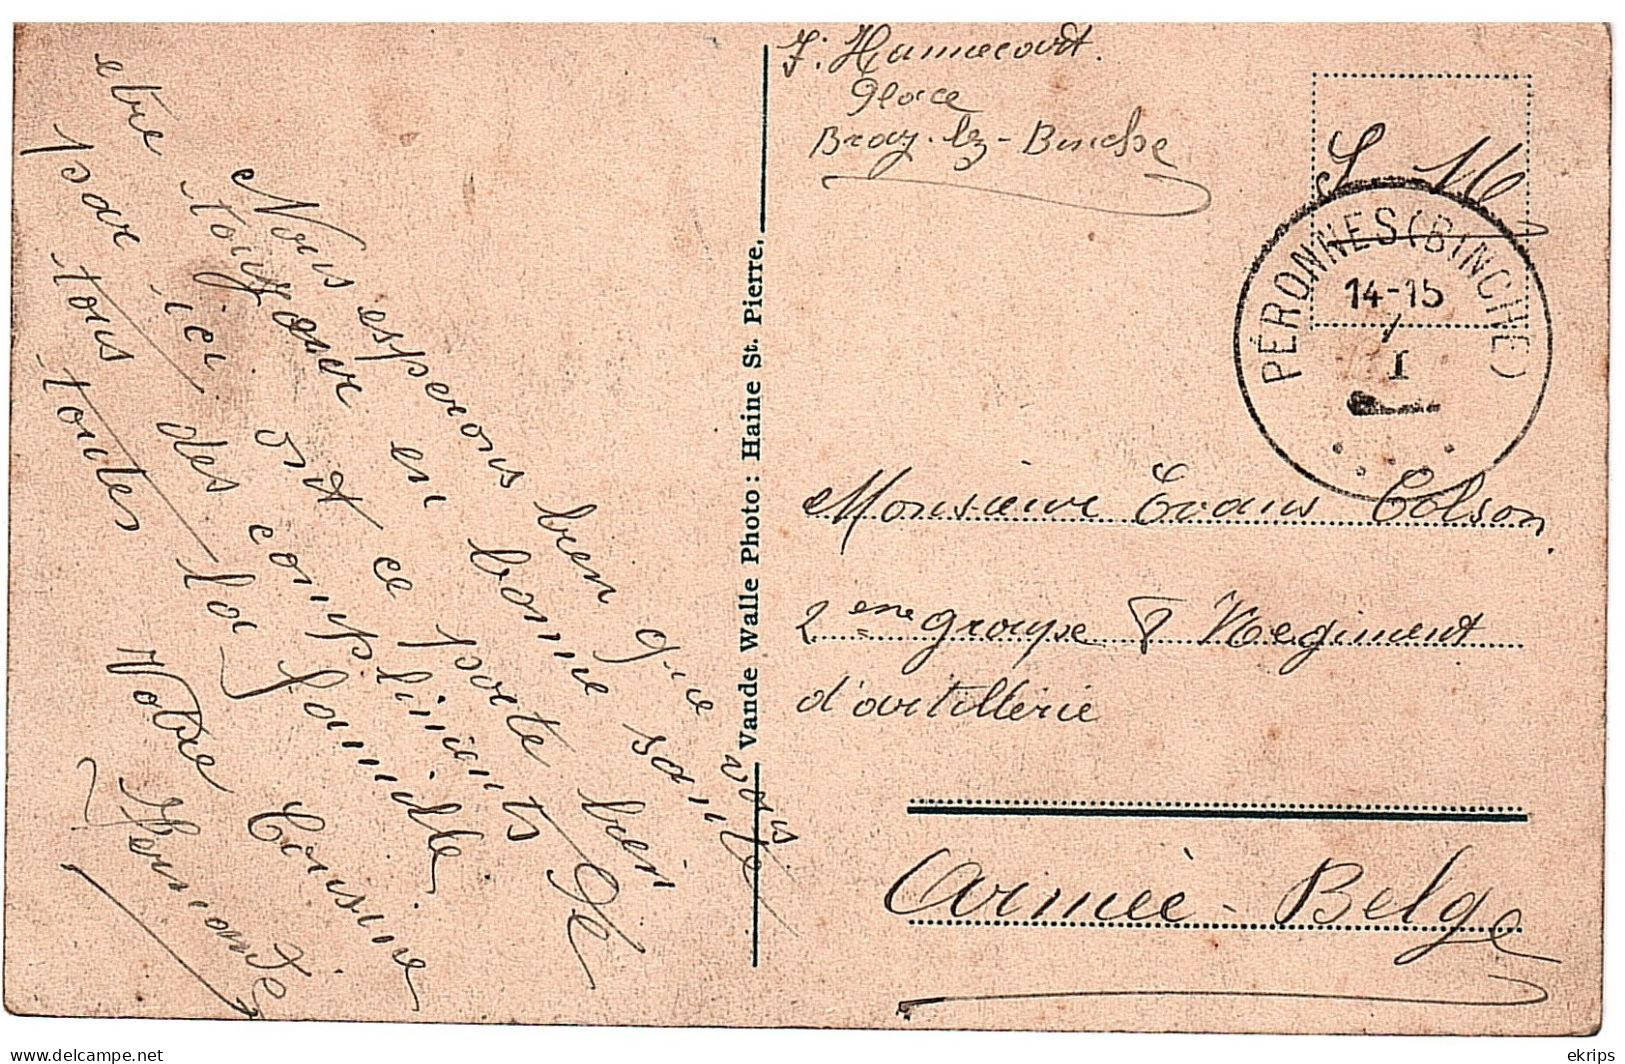 Nous esperons bien que vous
etre toujour en bonne santé
par ici ont ce porte bien
tous des compliments De
toutes la famille
Votre Cousine
Fernande
Vande Walle Photo: Haine St. Pierre.
F. Hannecart.
Place
Bray-lz-Binche
S. M.
PÉRONNES (BINCHE)
14-15
I
Monsieur Evans Colson
2eme groupe Regiment
d'artillerie
Armée-Belge
ekrips